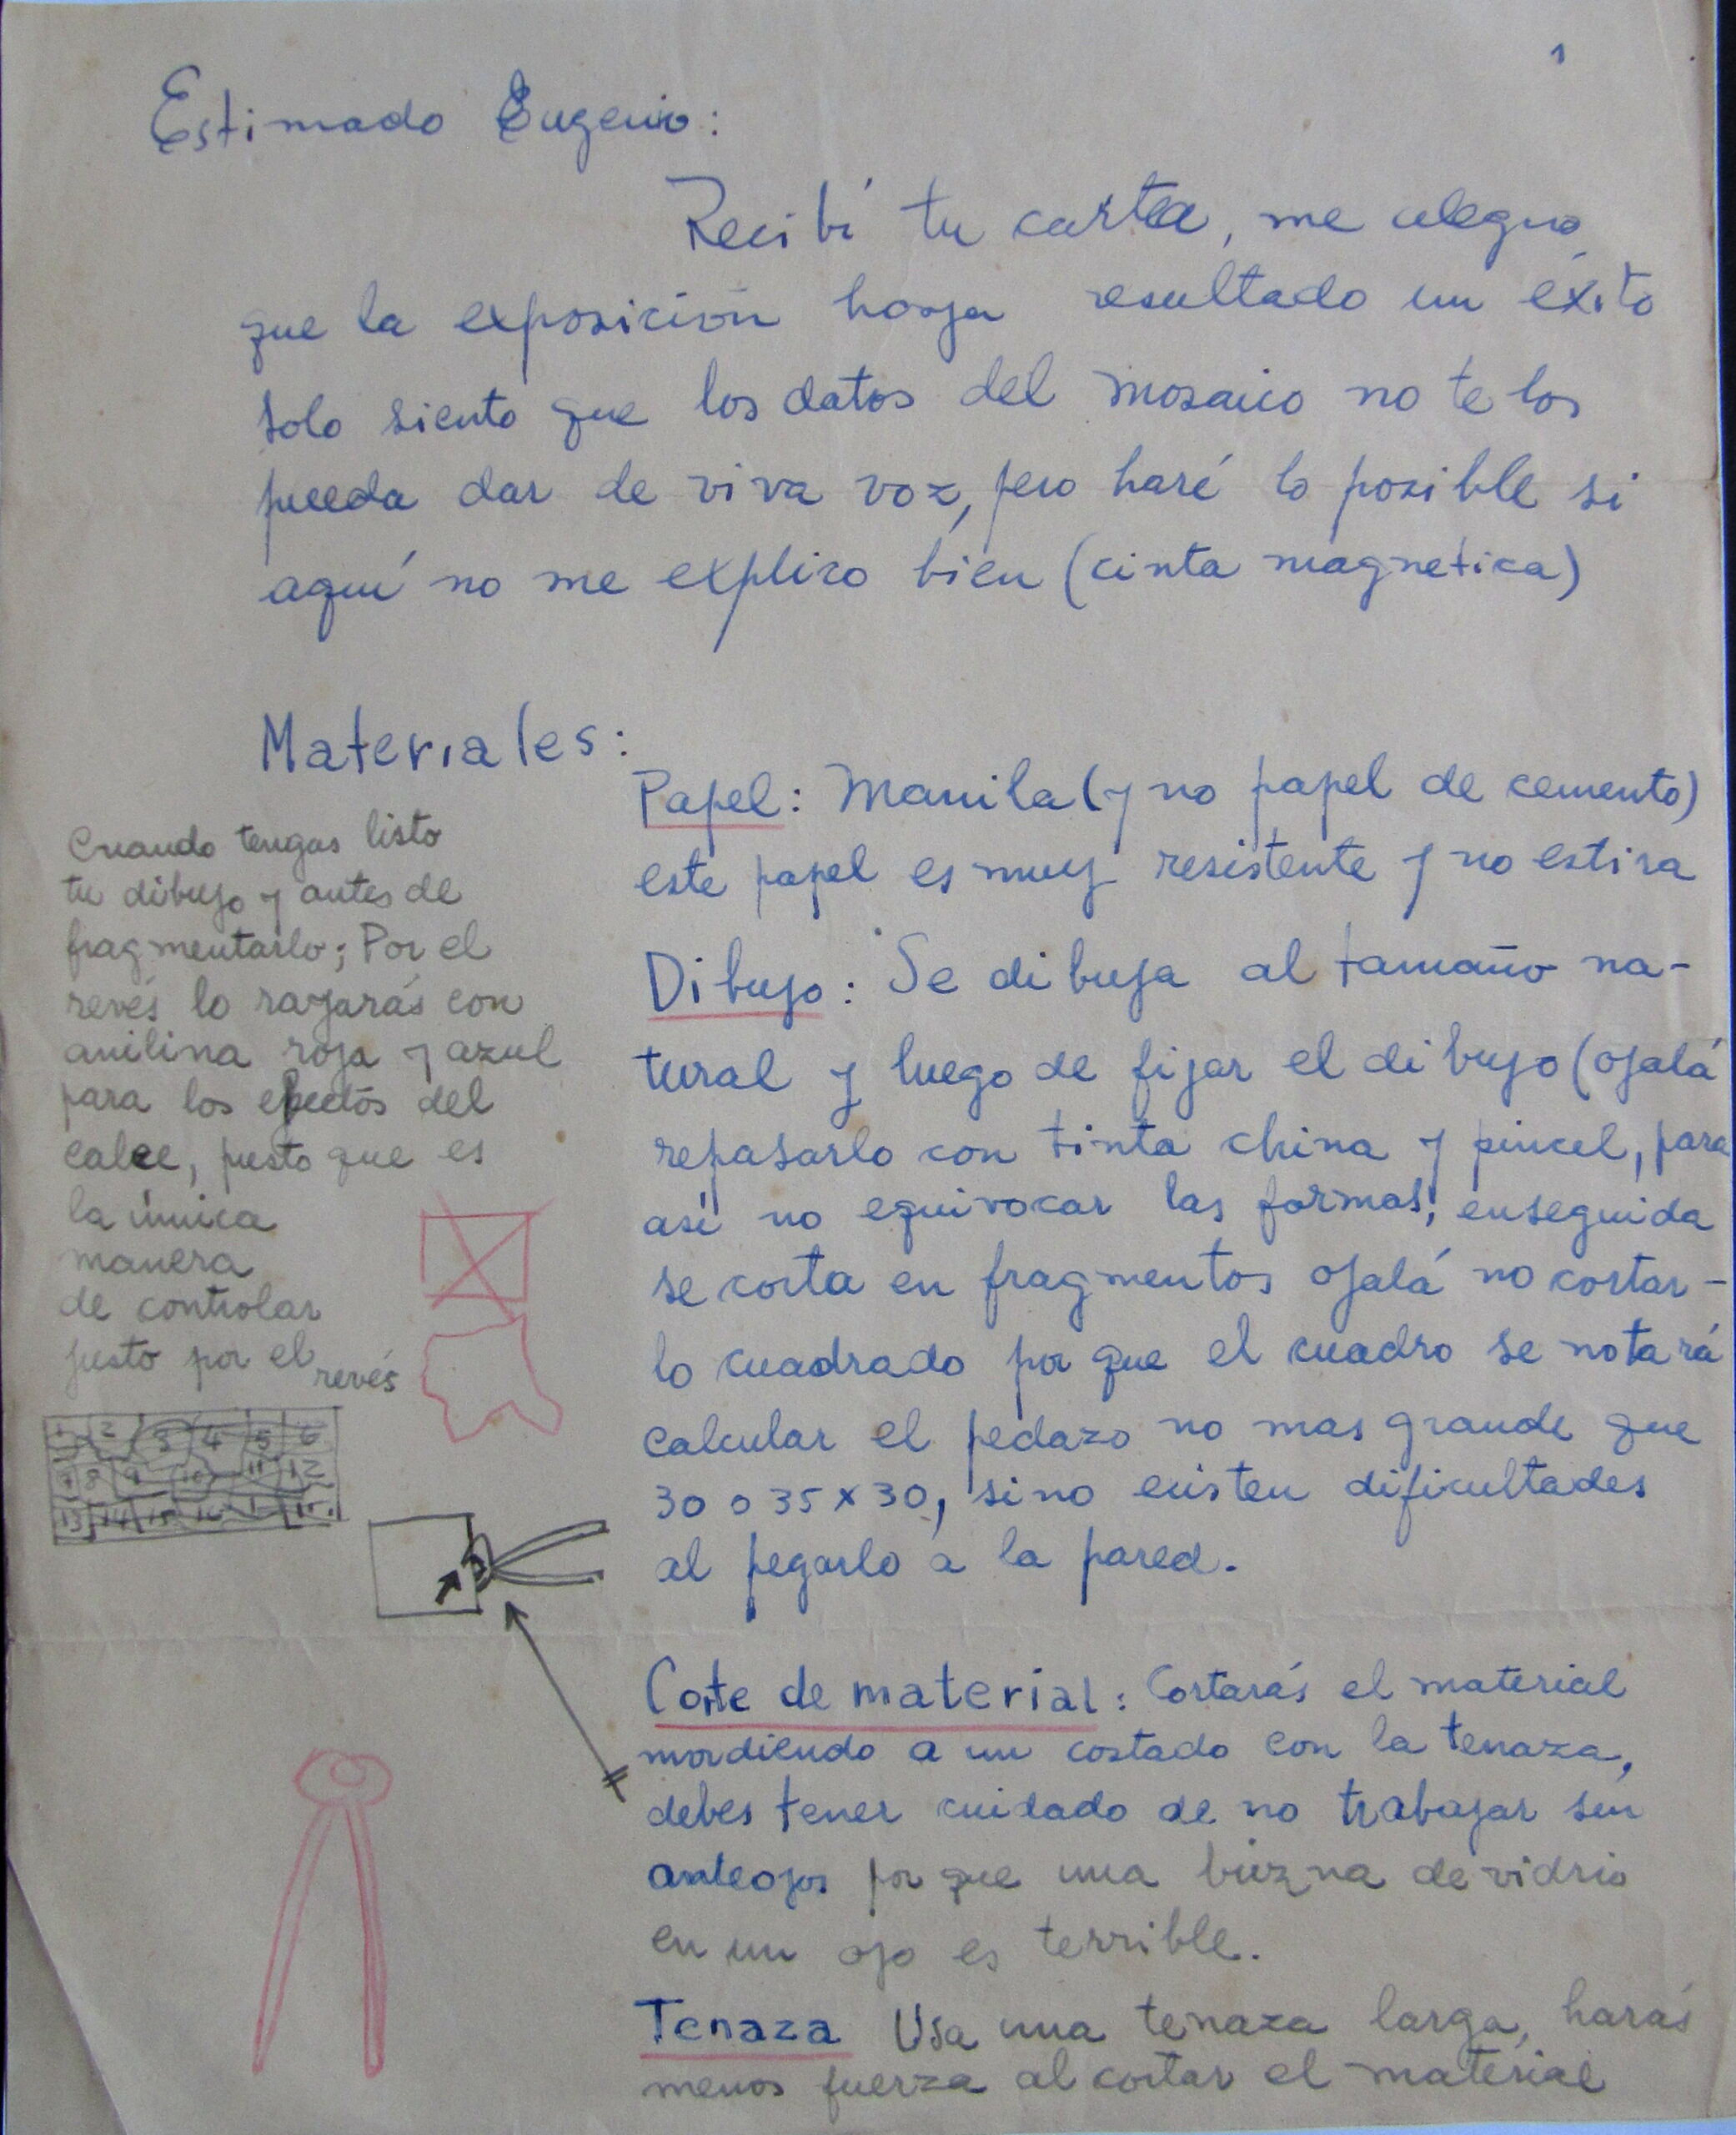 1
Estimado Eugenio:
Recibí tu carta, me alegro
que la exposición haya resultado un éxito
solo siento que los datos del mosaico no te los
pueda dar de viva voz, pero haré lo posible si
aquí no me explico bien (cinta magnetica)
Materiales:
Papel: Manila (y no papel de cemento)
este papel es muy resistente y no estira
Dibujo: Se dibuja al tamaño na-
tural y luego de fijar el dibujo (ojalá
repasarlo con tinta china y pincel, para
así no equivocar las formas; enseguida
se corta en fragmentos ojalá no cortar-
lo cuadrado por que el cuadro se notará
calcular el pedazo no mas grande que
30 o 35 x 30, sino existen dificultades
al pegarlo a la pared.
Cuando tengas listo
tu dibujo y antes de
fragmentarlo; Por el
revés lo rayarás con
anilina roja y azul
para los efectos del
calce, puesto que es
la única
manera
de controlar
justo por el
revés
1 2 3 4 5 6
7 8 9 10 11 12
13 14 15 16
Corte de material: Cortarás el material
mordiendo a un costado con la tenaza,
debes tener cuidado de no trabajar sin
anteojos por que una bizna de vidrio
en un ojo es terrible.
Tenaza Usa una tenaza larga, harás
menos fuerza al cortar el material